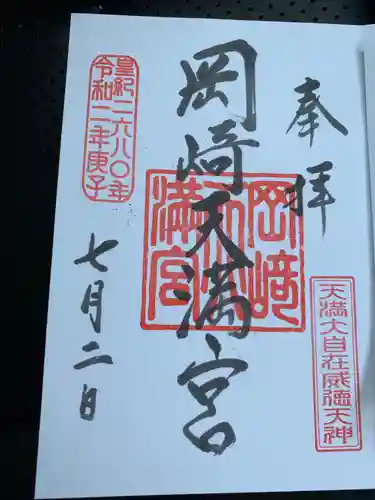 奉拝
天満大自在威徳天神
岡崎天満宮
岡﨑天満宮
皇紀二六八〇年
令和二年庚子
七月二日